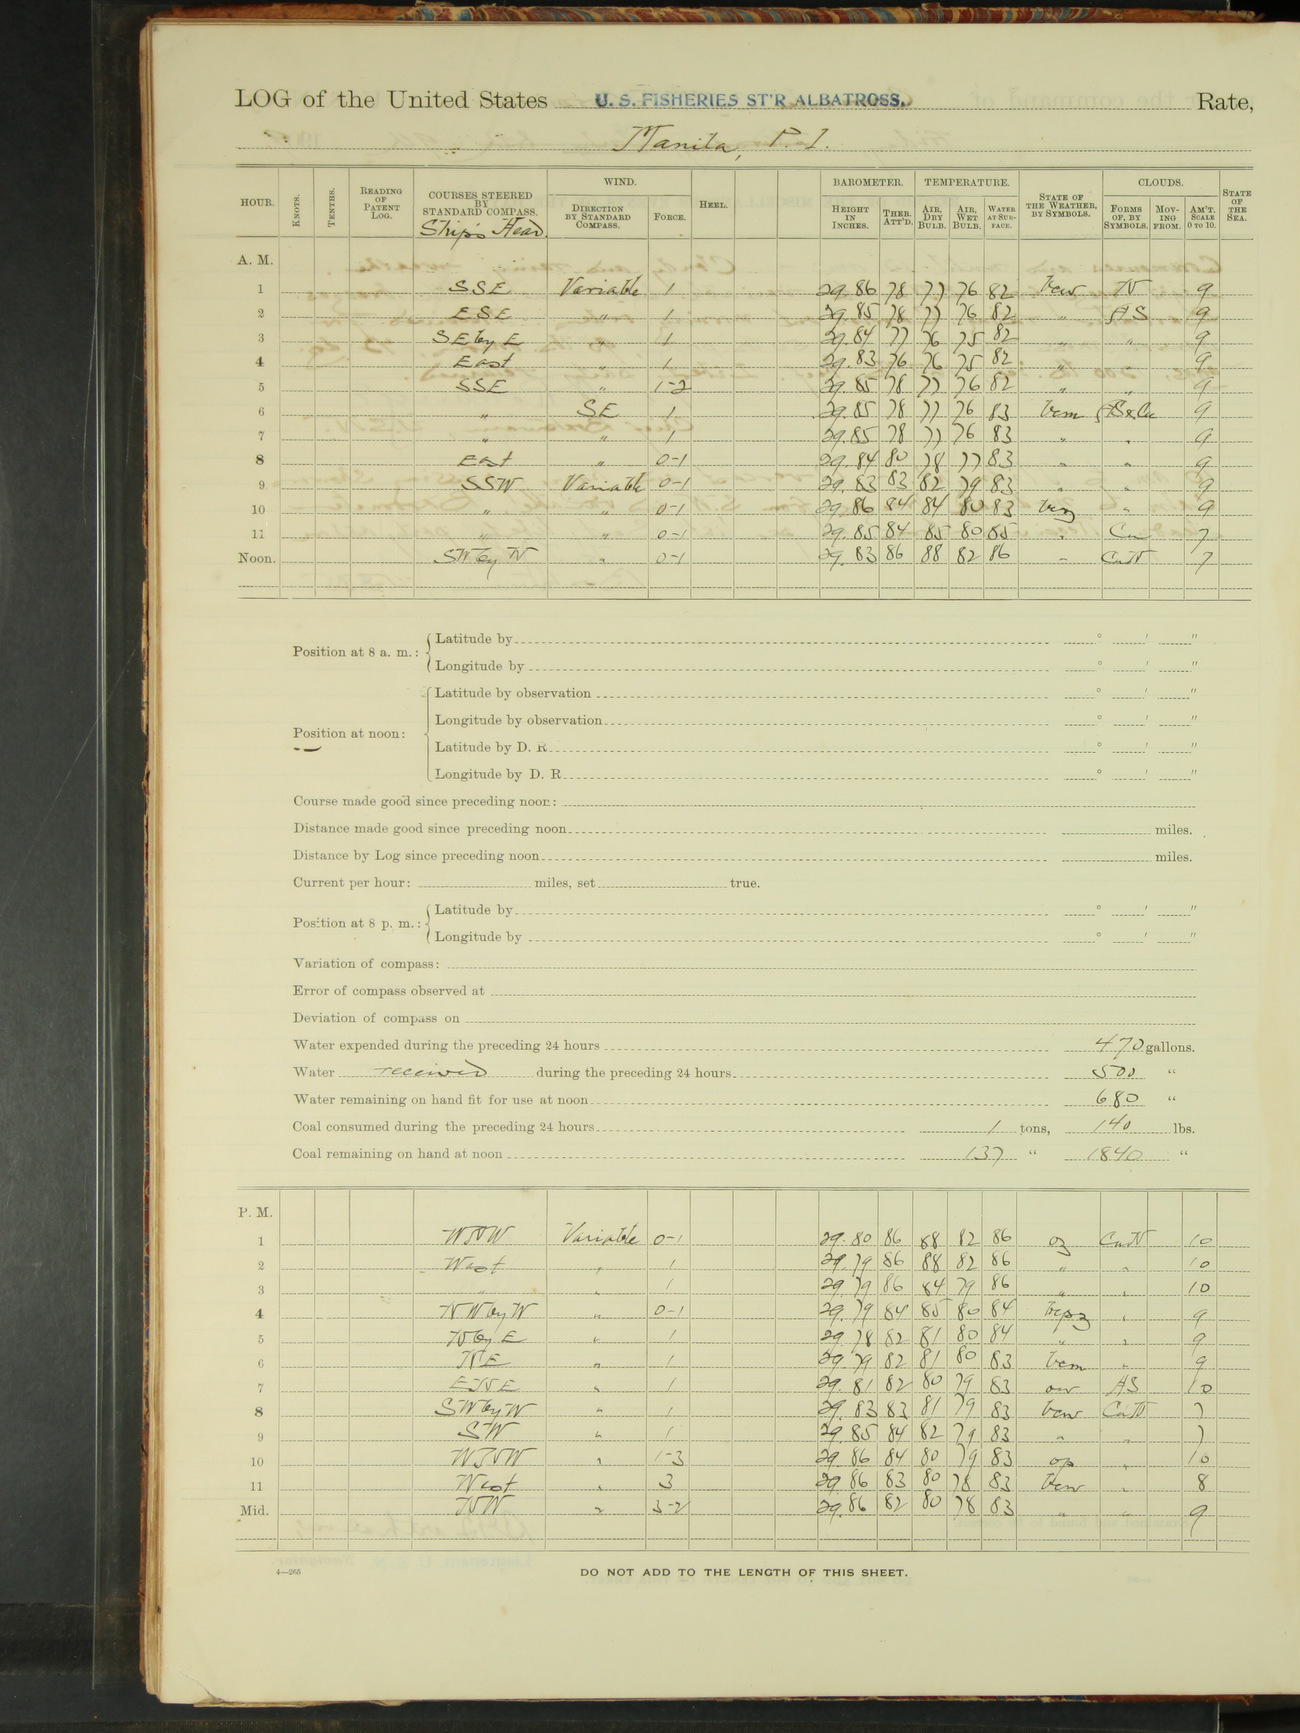 LOG of the United States U. S. FISHERIES ST'R ALBATROSS. Rate,
Manila, P. I.
HOUR. KNOTS. TENTHS. READING OF PATENT LOG. COURSES STEERED BY STANDARD COMPASS. Ship's Head WIND. DIRECTION BY STANDARD COMPASS. FORCE. HEEL. BAROMETER. HEIGHT IN INCHES. THER. ATT'D. TEMPERATURE. AIR, DRY BULB. AIR, WET BULB. WATER AT SURFACE. STATE OF THE WEATHER, BY SYMBOLS. CLOUDS. FORMS OF, BY SYMBOLS. MOVING FROM. AM'T. SCALE 0 TO 10. STATE OF THE SEA.
A. M.
1 SSE Variable 1 29.86 78 77 76 82 bcw N 9
2 ESE " 1 29.85 78 77 76 82 " AS 9
3 SE by E " 1 29.84 77 76 75 82 " " 9
4 East " 1 29.83 76 76 75 82 " " 9
5 SSE " 1-2 29.85 78 77 76 82 " " 9
6 " SE 1 29.85 78 77 76 83 bcm AS&Cu 9
7 " " 1 29.85 78 77 76 83 " " 9
8 East " 0-1 29.84 80 78 77 83 " " 9
9 SSW Variable 0-1 29.83 83 82 79 83 " " 9
10 " " 0-1 29.86 84 84 80 83 bcz " 9
11 " " 0-1 29.85 84 85 80 85 " Cu 7
Noon. SW by W " 0-1 29.83 86 88 82 86 " CuN 7
Position at 8 a. m.: Latitude by ° ' "
Longitude by ° ' "
Position at noon: Latitude by observation ° ' "
Longitude by observation ° ' "
Latitude by D. R. ° ' "
Longitude by D. R. ° ' "
Course made good since preceding noon:
Distance made good since preceding noon miles.
Distance by Log since preceding noon miles.
Current per hour: miles, set true.
Position at 8 p. m.: Latitude by ° ' "
Longitude by ° ' "
Variation of compass:
Error of compass observed at
Deviation of compass on
Water expended during the preceding 24 hours 470 gallons.
Water received during the preceding 24 hours 500 "
Water remaining on hand fit for use at noon 680 "
Coal consumed during the preceding 24 hours 1 tons, 140 lbs.
Coal remaining on hand at noon 137 " 1840 "
P. M.
1 WNW Variable 0-1 29.80 86 88 82 86 oz CuN 10
2 West " 1 29.79 86 88 82 86 " " 10
3 " " 1 29.79 86 84 79 86 " " 10
4 NW by W " 0-1 29.79 84 85 80 84 bcpz " 9
5 N by E " 1 29.78 82 81 80 84 " " 9
6 NE " 1 29.79 82 81 80 83 bcm " 9
7 ENE " 1 29.81 82 80 79 83 ow AS 10
8 SW by W " 1 29.83 83 81 79 83 bcw CuN 7
9 SW " 1 29.85 84 82 79 83 " " 7
10 WNW " 1-3 29.86 84 80 79 83 op " 10
11 West " 3 29.86 83 80 78 83 bcw " 8
Mid. NW " 3-2 29.86 82 80 78 83 " " 9
4—265 DO NOT ADD TO THE LENGTH OF THIS SHEET.